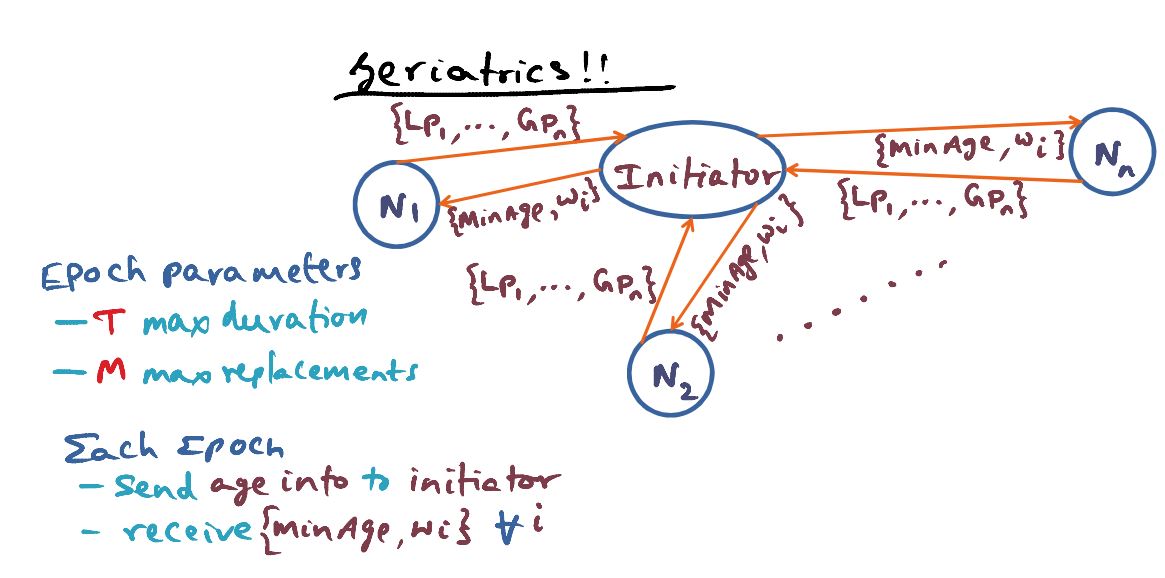 Geriatrics!!
{LP₁, ..., GPₙ}
Initiator
{MinAge, wᵢ}
Nₙ
N₁
{MinAge, wᵢ}
{LP₁, ..., GPₙ}
{MinAge, wᵢ}
{LP₁, ..., GPₙ}
N₂
. . . . . . .
Epoch parameters
– T max duration
– M max replacements
Each Epoch
– Send age info to initiator
– receive {MinAge, wi} ∀ i